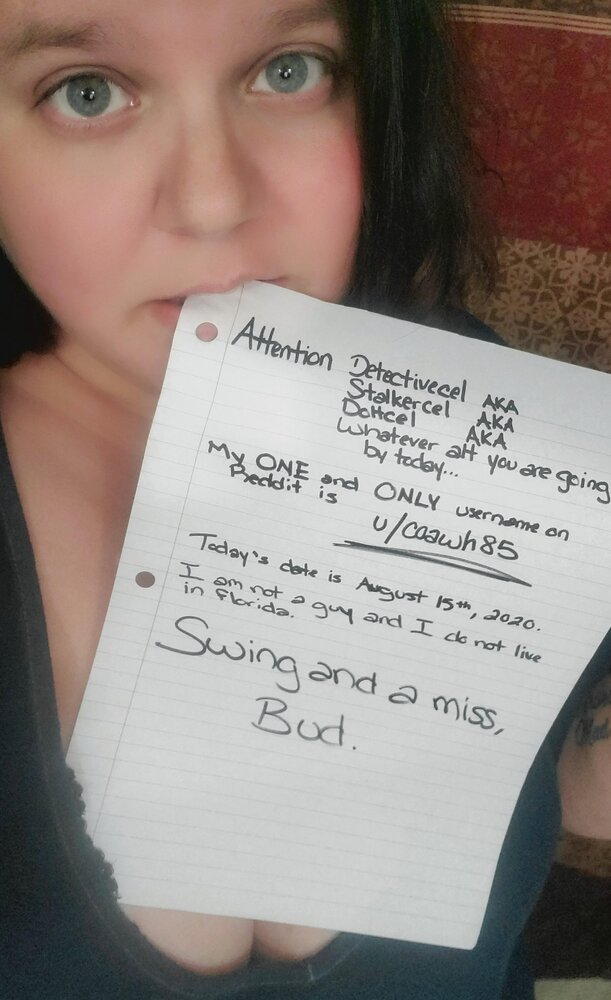 Attention Detectivecel AKA
Stalkercel AKA
Dottcel AKA
Whatever alt you are going
by today...
My ONE and ONLY username on
Reddit is u/caawh85
Today's date is August 15th, 2020.
I am not a guy and I do not live
in Florida.
Swing and a miss,
Bud.